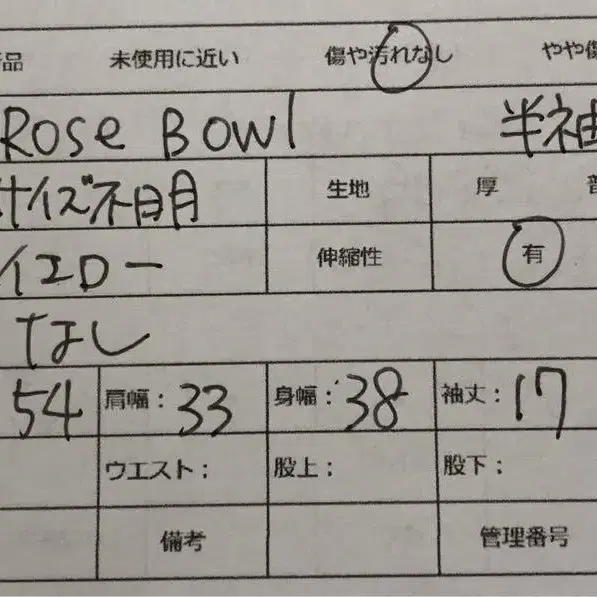 品 未使用に近い 傷や汚れなし やや傷
Rose Bowl 半袖
サイズ不明 生地 厚 普
イエロー 伸縮性 有
なし
54 肩幅：33 身幅：38 袖丈：17
ウエスト： 股上： 股下：
備考 管理番号